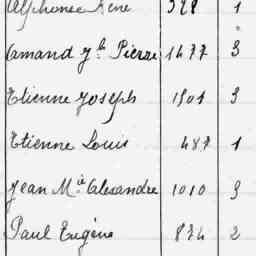 Alphonse René 328 1
Amand Jh Pierre 1477 3
Etienne Joseph 1501 3
Etienne Louis 487 1
Jean Mie Alexandre 1010 3
Paul Eugène 874 2